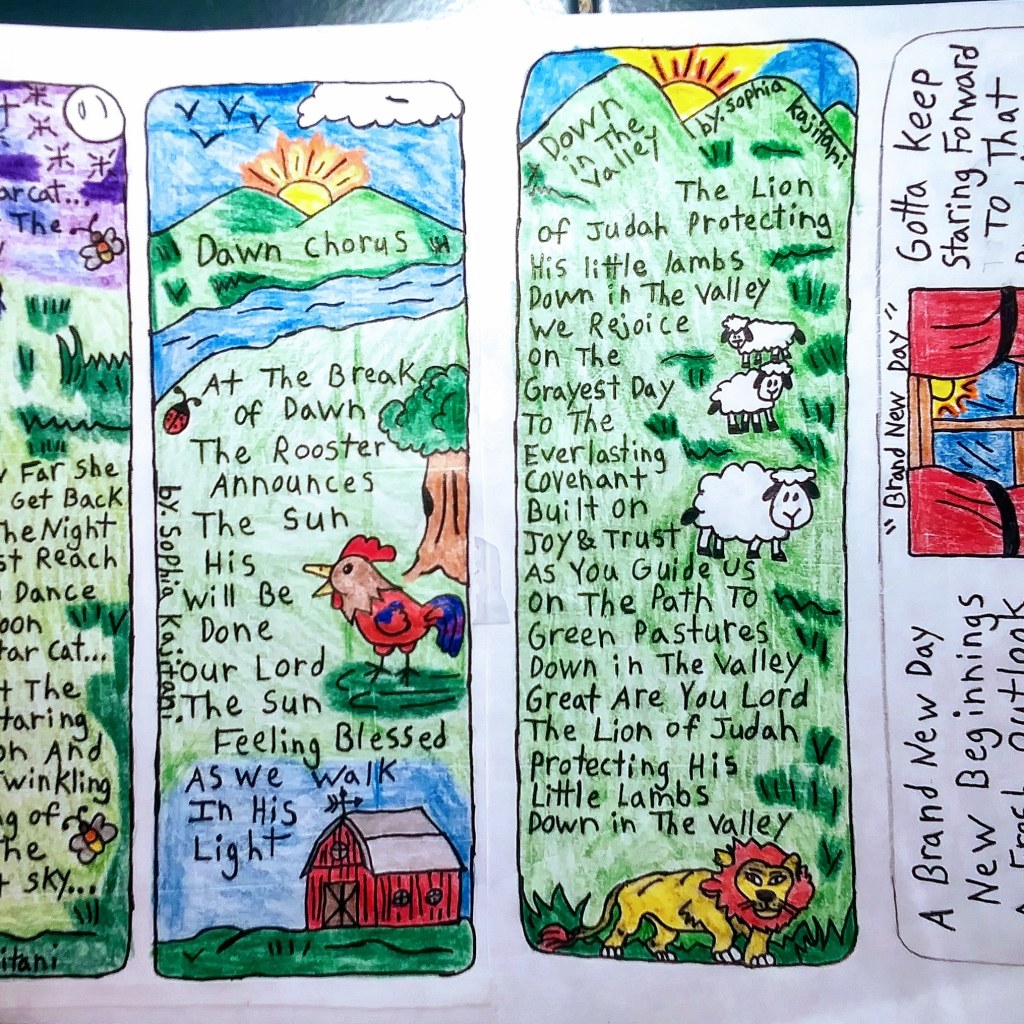 arcat...
The
Far She
Get Back
he Night
st Reach
Dance
oon
tar cat...
t The
taring
on And
Twinkling
g of
he
t sky...
itani
Dawn Chorus
At The Break
of Dawn
The Rooster
Announces
The Sun
His
Will Be
Done
Our Lord
The Sun
Feeling Blessed
As We Walk
In His
Light
by: Sophia Kajitani
Down
in The
Valley
by: sophia
kajitani
The Lion
of Judah Protecting
His little lambs
Down in The Valley
We Rejoice
on The
Grayest Day
To The
Everlasting
Covenant
Built on
Joy & Trust
As You Guide us
on The Path To
Green Pastures
Down in The Valley
Great Are You Lord
The Lion of Judah
Protecting His
Little Lambs
Down in The Valley
"Brand New Day"
A Brand New Day
New Beginnings
A Fresh Outlook
Gotta Keep
Staring Forward
To That